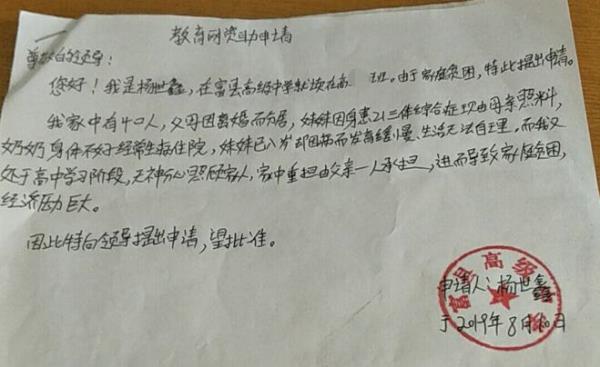 教育局资助申请
尊敬的领导：
您好！我是杨世鑫，在富县高级中学就读在高 班。由于家庭贫困，特此提出申请。
我家中有4口人，父母因离婚而分居，妹妹因有患21三体综合症现由母亲照料，
奶奶身体不好经常生病住院，妹妹已八岁却因病而发育缓慢、生活无法自理。而我又
处于高中学习阶段，无神分心照顾家人，家中重担由父亲一人承担，进而导致家庭贫困，
经济压力巨大。
因此特向领导提出申请，望批准。
富县高级
申请人：杨世鑫
于2019年8月10日